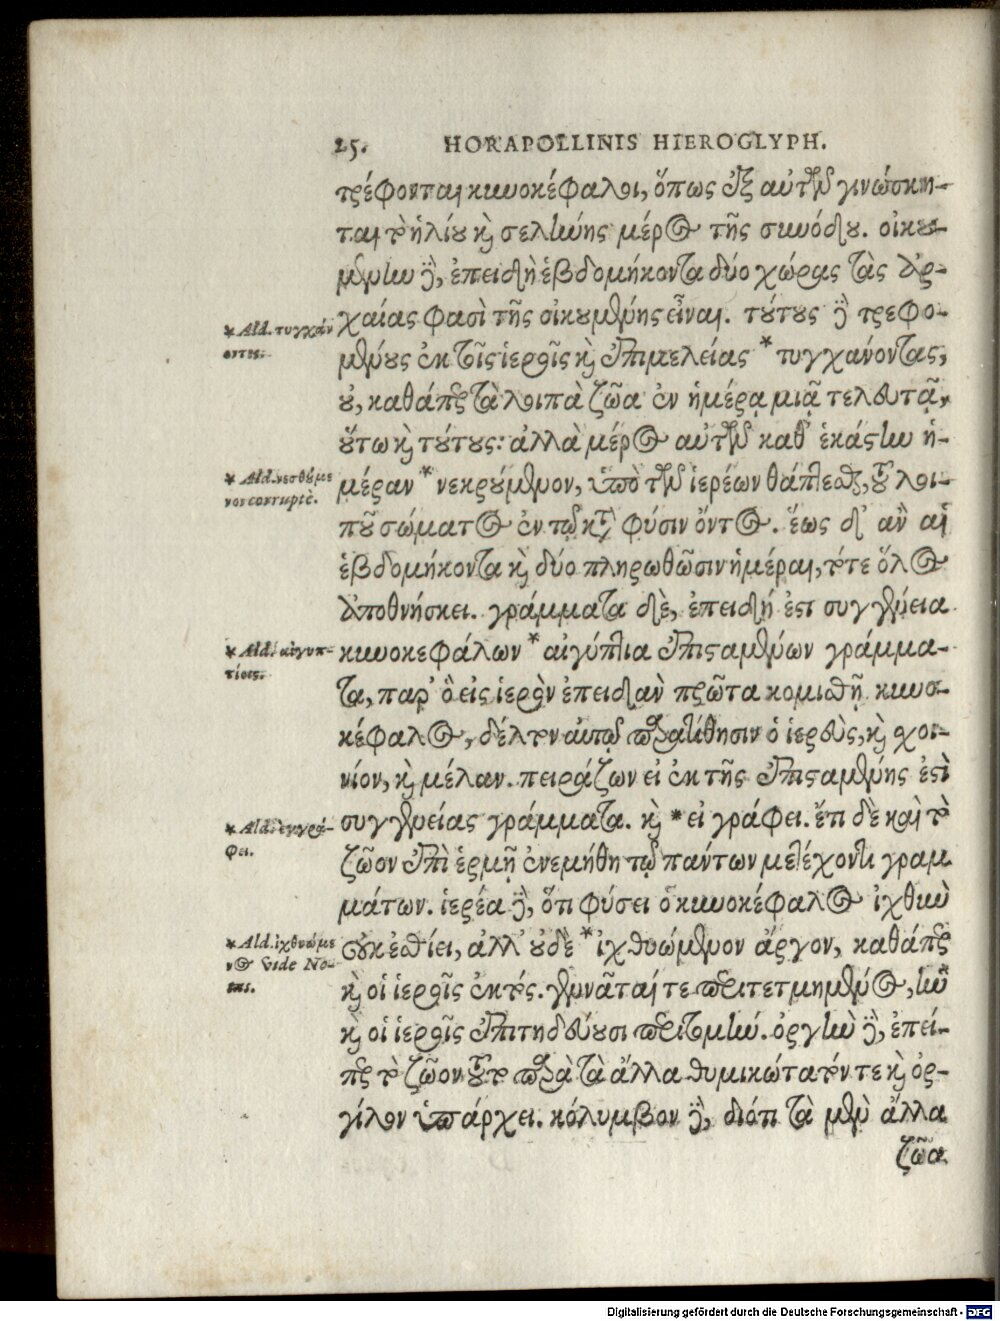 25. HORAPOLLINIS HIEROGLYPH.
τρέφονται κυνοκέφαλοι, ὅπως ἐξ αὐτῶν γινώσκη-
ται τὸ ἡλίου καὶ σελήνης μέρος τῆς συνόδου. οἰκου-
μένην δὲ, ἐπειδὴ ἑβδομήκοντα δύο χώρας τὰς ἀρ-
χαίας φασὶ τῆς οἰκουμένης εἶναι. τούτους δὲ τρεφο-
μένους ἐν τοῖς ἱεροῖς καὶ ἐπιμελείας * τυγχάνοντας,
οὐ, καθάπερ τὰ λοιπὰ ζῶα ἐν ἡμέρᾳ μιᾷ τελευτᾷ,
οὕτω καὶ τούτους: ἀλλὰ μέρος αὐτῶν καθ' ἑκάστην ἡ-
μέραν * νεκρούμενον, ὑπὸ τῶν ἱερέων θάπτεσθαι, τοῦ λοι-
ποῦ σώματος ἐν τῷ κατὰ φύσιν ὄντος. ἕως δ' ἂν αἱ
ἑβδομήκοντα καὶ δύο πληρωθῶσιν ἡμέραι, τότε ὅλος
ἀποθνήσκει. γράμματα δὲ, ἐπειδή ἐστι συγγένεια
κυνοκεφάλων * αἰγύπτια ἐπισταμένων γράμμα-
τα, παρ' ὃ εἰς ἱερὸν ἐπειδὰν πρῶτα κομισθῇ κυνο-
κέφαλος, δέλτον αὐτῷ παρατίθησιν ὁ ἱερεὺς, καὶ σχοι-
νίον, καὶ μέλαν. πειράζων εἰ ἐκ τῆς ἐπισταμένης ἐστὶ
συγγενείας γράμματα. καὶ * εἰ γράφει. ἔτι δὲ καὶ τὸ
ζῶον ἐπὶ ἑρμῇ ἐνεμήθη τῷ πάντων μετέχοντι γραμ
μάτων. ἱερέα δὲ, ὅτι φύσει ὁ κυνοκέφαλος ἰχθῦν
οὐκ ἐσθίει, ἀλλ' οὐδὲ * ἰχθυώμενον ἄρτον, καθάπερ
καὶ οἱ ἱερεῖς ἐκτός. γεννᾶταί τε περιτετμημένος, ἣν
καὶ οἱ ἱερεῖς ἐπιτηδεύουσι περιτομήν. ὀργὴν δὲ, ἐπεί-
περ τὸ ζῶον τοῦτο παρὰ τὰ ἄλλα θυμικώτατόν τε καὶ ὀρ-
γίλον ὑπάρχει. κόλυμβον δὲ, διότι τὰ μὲν ἄλλα
ζῶα
* Ald. τυγχάν
οντες.
* Ald. νεσθούμε
νον corruptè.
* Ald. αἰγυπ-
τίοις.
* Ald. ἐγγρά-
φει.
* Ald. ἰχθυώμε
νος vide No-
tas.
Digitalisierung gefördert durch die Deutsche Forschungsgemeinschaft - DFG